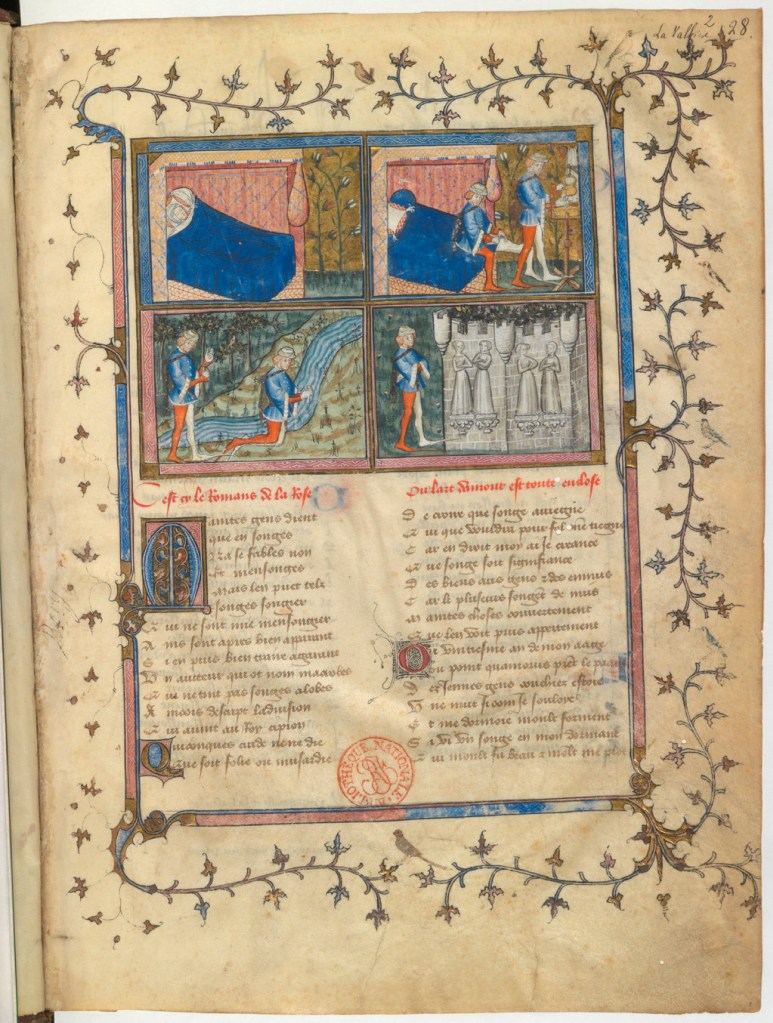 La Valliere 28.
2
Cest cy le Romans de la Rose
Maintes gens dient
que en songes
Na se fables non
Et mensonges
Mais len puet telz
songes songier
Qui ne sont mie mensongier
Ains sont apres bien apparant
Si en puis bien traire a garant
Un aucteur qui ot nom macrobes
Qui ne tint pas songes a lobes
Ancois descript la vision
Qui avint au Roy cipion
Quiconques cuide ne ne die
Que soit folie ou musardie
Ou lart damour est toute enclose
De croire que songe aviegne
Qui que vouldra pour fol me tiegne
Car en droit moy ai je creance
Que songe soit signifiance
Des biens aus gens et des ennuis
Car li plusieurs songent de nuis
Maintes choses couvertement
Que len voit puis appertement
Ou vintiesme an de mon aage
Ou point quamours prent le paage
Des jennes gens couchiez estoie
Une nuit si com je souloye
Et me dormoie moult forment
Si vi un songe en mon dormant
Qui moult fu beau et moult me plot
BIBLIOTHEQUE NATIONALE